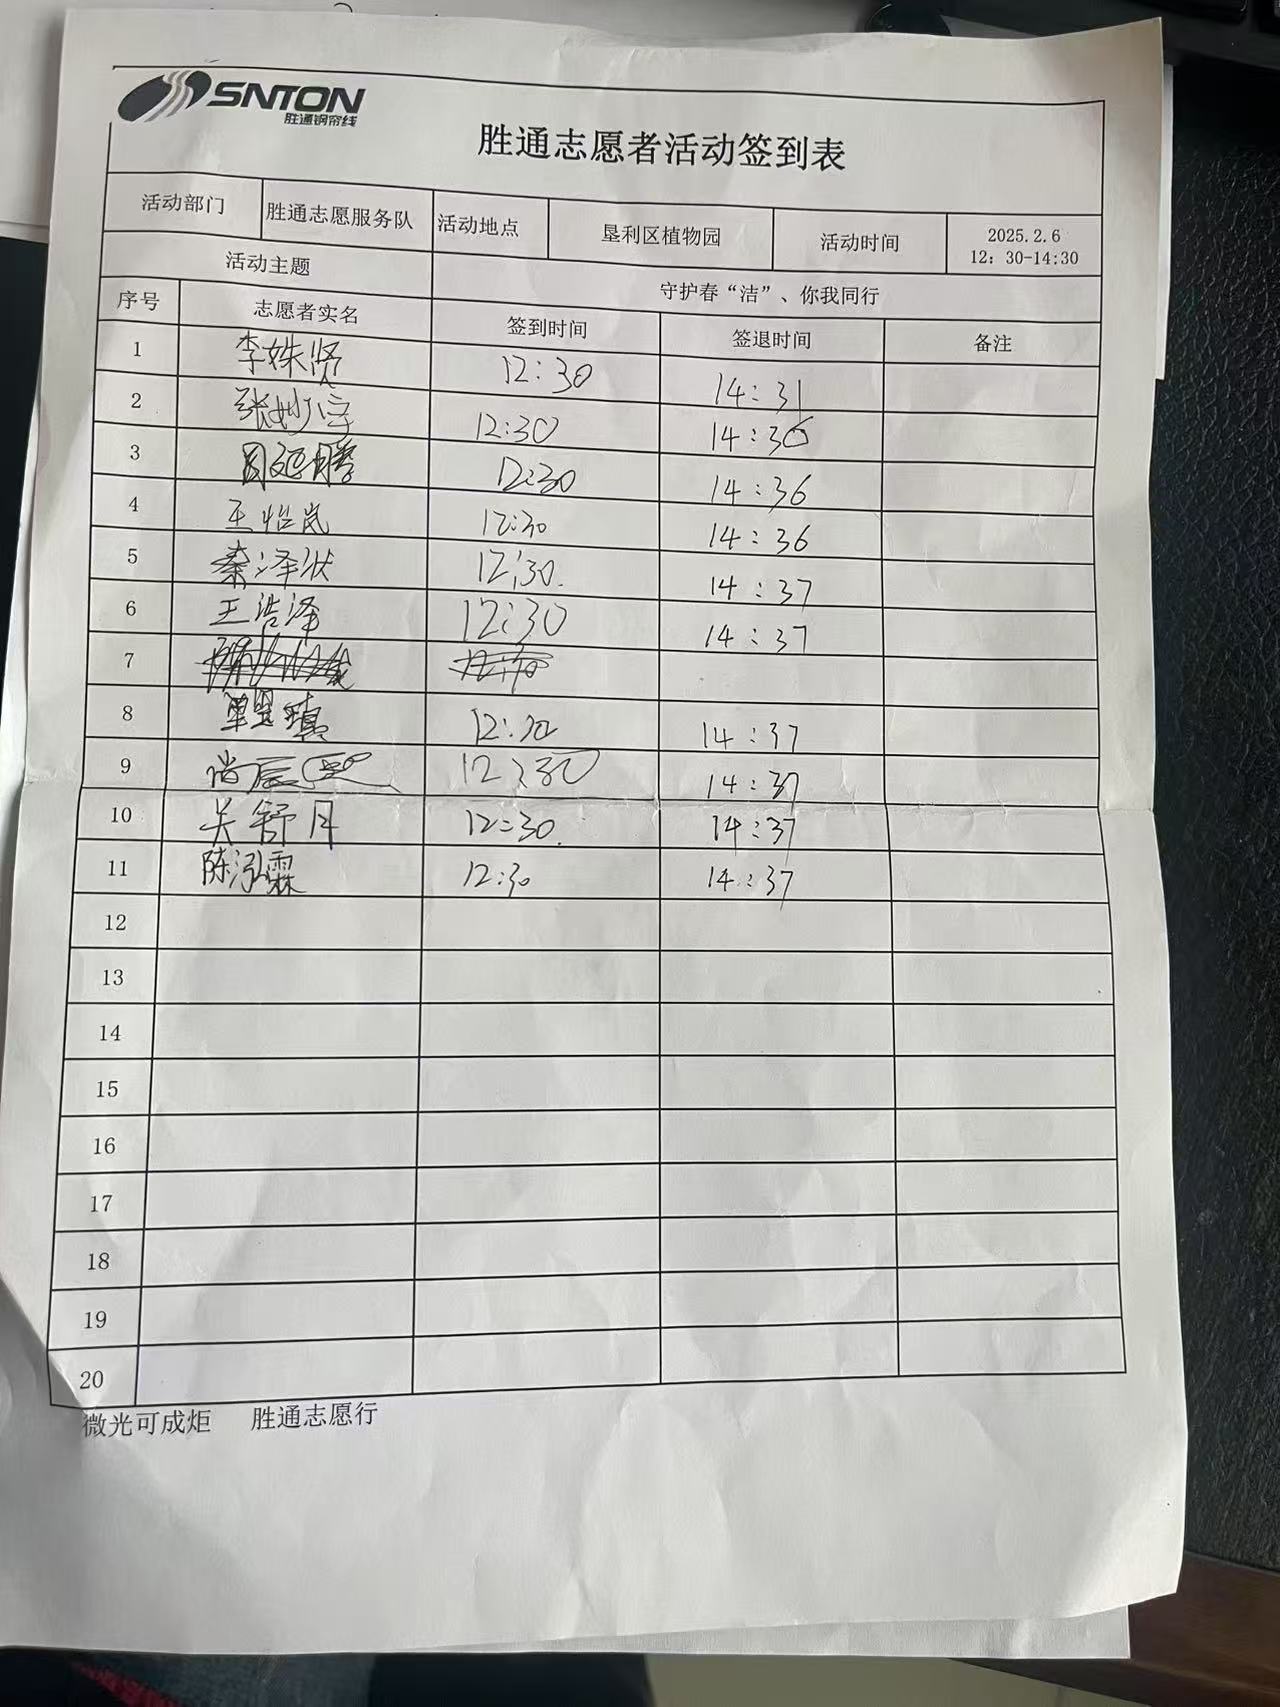 SNTON
胜通钢帘线
胜通志愿者活动签到表
活动部门 胜通志愿服务队 活动地点 垦利区植物园 活动时间 2025.2.6
12：30-14:30
活动主题 守护春“洁”、你我同行
序号 志愿者实名 签到时间 签退时间 备注
1 李姝贤 12:30 14:31
2 张妙 12:30 14:36
3 周延腾 12:30 14:36
4 王怡岚 12:30 14:36
5 秦泽 12:30. 14:37
6 王浩泽 12:30 14:37
7
8 12:30 14:37
9 尚辰 12:30 14:37
10 关舒月 12:30. 14:37
11 陈泓霖 12:30 14:37
12
13
14
15
16
17
18
19
20
微光可成炬 胜通志愿行